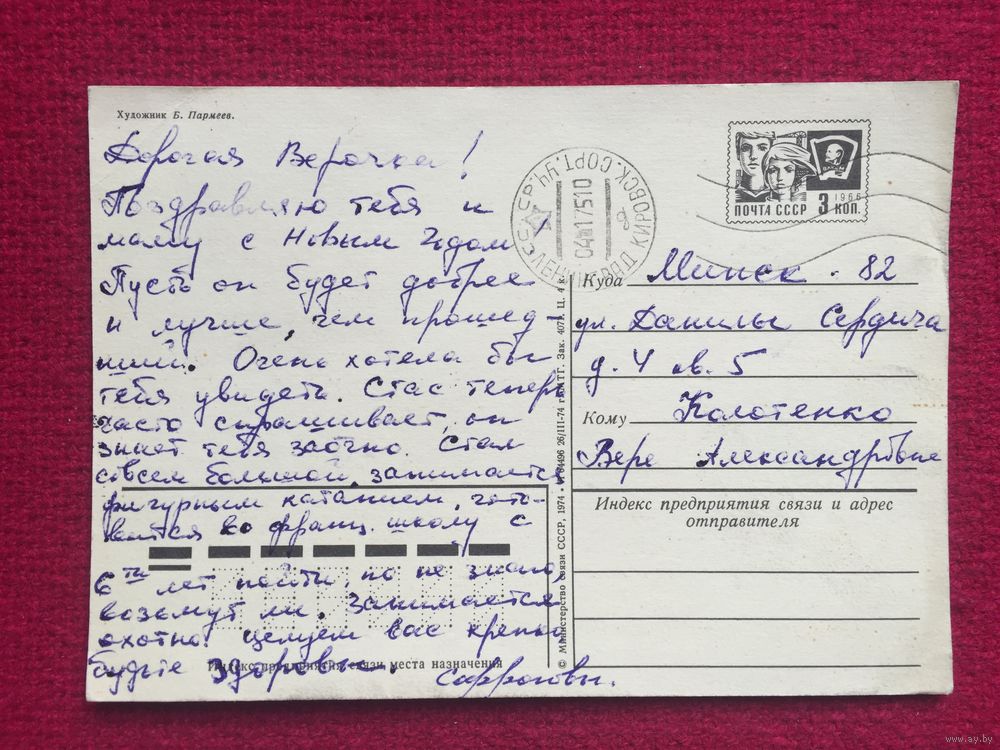 Художник Б. Пармеев.
Дорогая Верочка!
Поздравляю тебя и
маму с Новым годом
Пусть он будет добрее
и лучше, чем прошед
ший. Очень хотела бы
тебя увидеть. Стас теперь
часто спрашивает, он
знает тебя заочно. Стал
совсем большой, занимается
фигурным катанием, гото-
вится во франц. школу с
6ти лет пойти, но не знаю,
возьмут ли. Занимается
охотно. Целуем вас крепко
будьте здоровы.
Индекс предприятия связи места назначения
© Министерство связи СССР, 1974
26/III-74 г.
Зак. 4071. Ц. 4 к.
СССР ЛЕНИНГРАД КИРОВСК. СОРТ. УЧ.
ПОЧТА СССР 3 КОП. 1966
Куда Минск - 82
ул. Данилы Сердича
д. 4 кв. 5
Кому Колотенко
Вере Александровне
Индекс предприятия связи и адрес
отправителя
www.ay.by